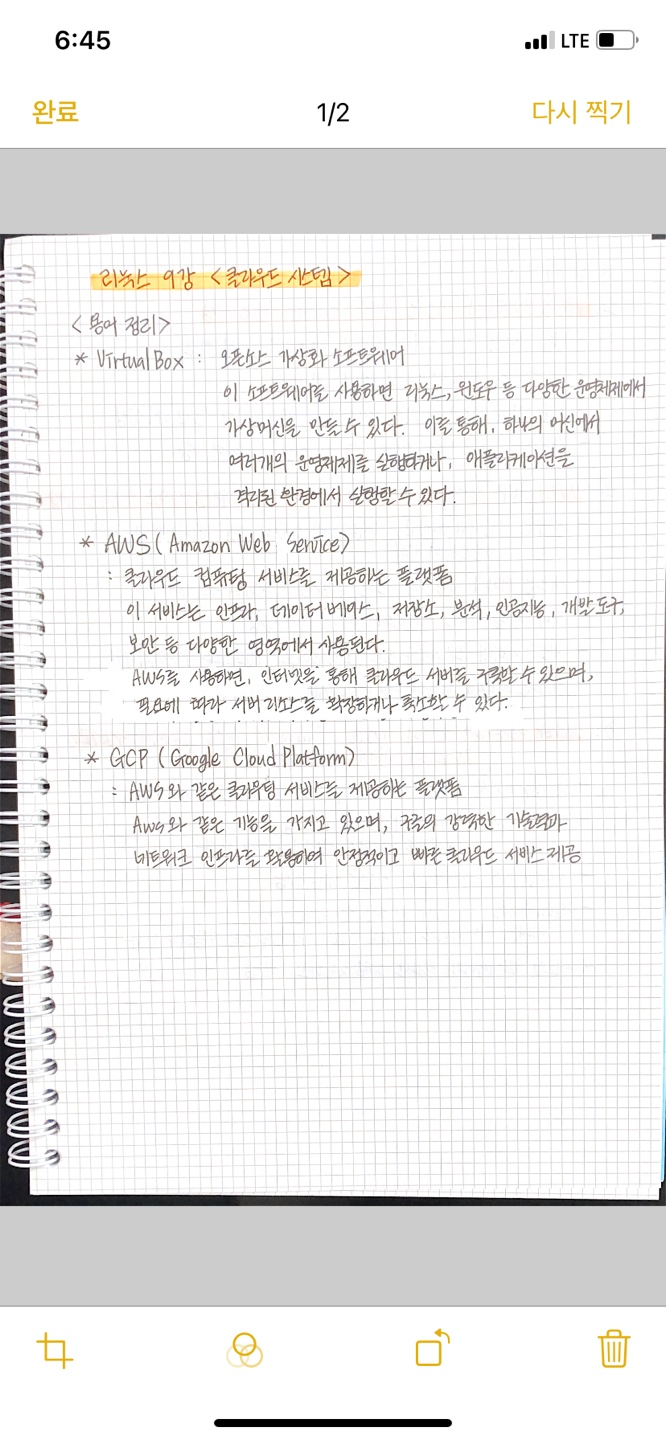 6:45
LTE
완료
1/2
다시 찍기
리눅스 9강 <클라우드 시스템>
<용어 정리>
* VirtualBox : 오픈소스 가상화 소프트웨어
이 소프트웨어를 사용하면 리눅스, 윈도우 등 다양한 운영체제에서
가상머신을 만들 수 있다. 이를 통해, 하나의 머신에서
여러개의 운영체제를 실행하거나, 애플리케이션을
격리된 환경에서 실행할 수 있다.
* AWS (Amazon Web Service)
: 클라우드 컴퓨팅 서비스를 제공하는 플랫폼
이 서비스는 인프라, 데이터베이스, 저장소, 분석, 인공지능, 개발 도구,
보안 등 다양한 영역에서 사용된다.
AWS를 사용하면, 인터넷을 통해 클라우드 서버를 구축할 수 있으며,
필요에 따라 서버 리소스를 확장하거나 축소할 수 있다.
* GCP (Google Cloud Platform)
: AWS와 같은 클라우팅 서비스를 제공하는 플랫폼
AWS와 같은 기능을 가지고 있으며, 구글의 강력한 기술력과
네트워크 인프라를 활용하여 안정적이고 빠른 클라우드 서비스 제공